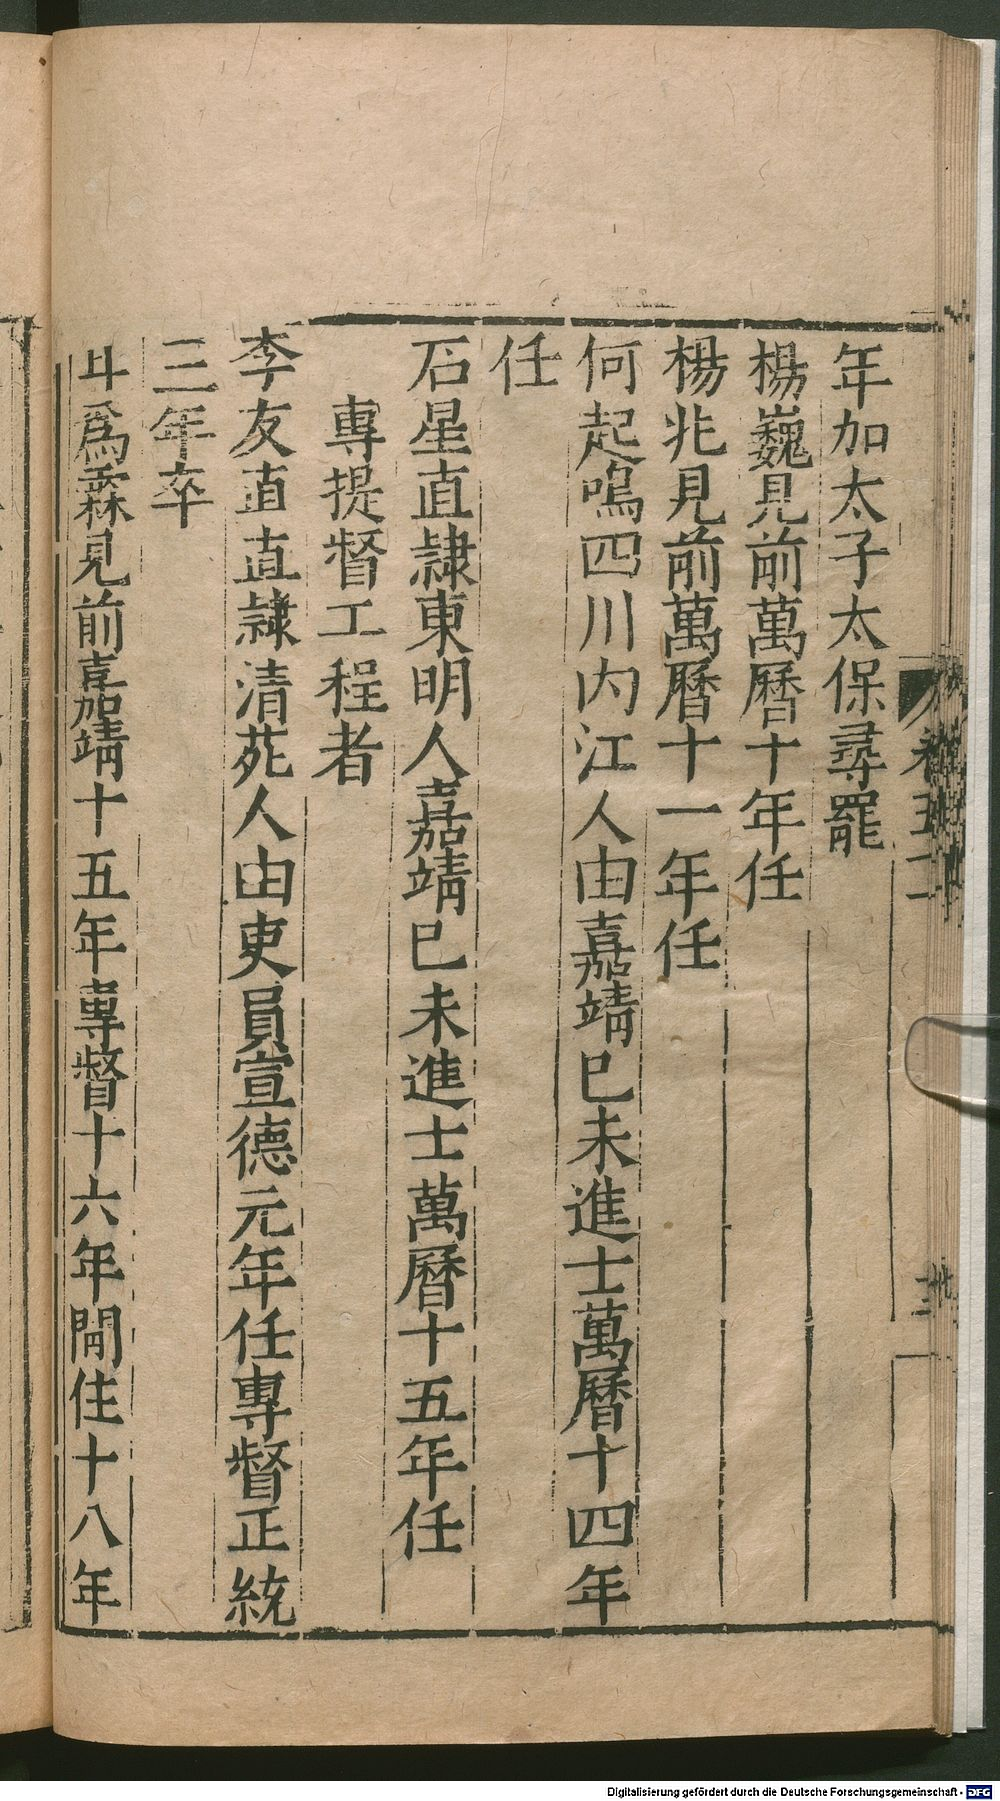 年加太子太保尋罷
楊巍見前萬曆十年任
楊兆見前萬曆十一年任
何起鳴四川内江人由嘉靖已未進士萬曆十四年
任
石星直隸東明人嘉靖已未進士萬曆十五年任
專提督工程者
李友直直隸清苑人由吏員宣德元年任專督正統
三年卒
爲霖見前嘉靖十五年專督十六年閒住十八年
卷五
Digitalisierung gefördert durch die Deutsche Forschungsgemeinschaft - DFG